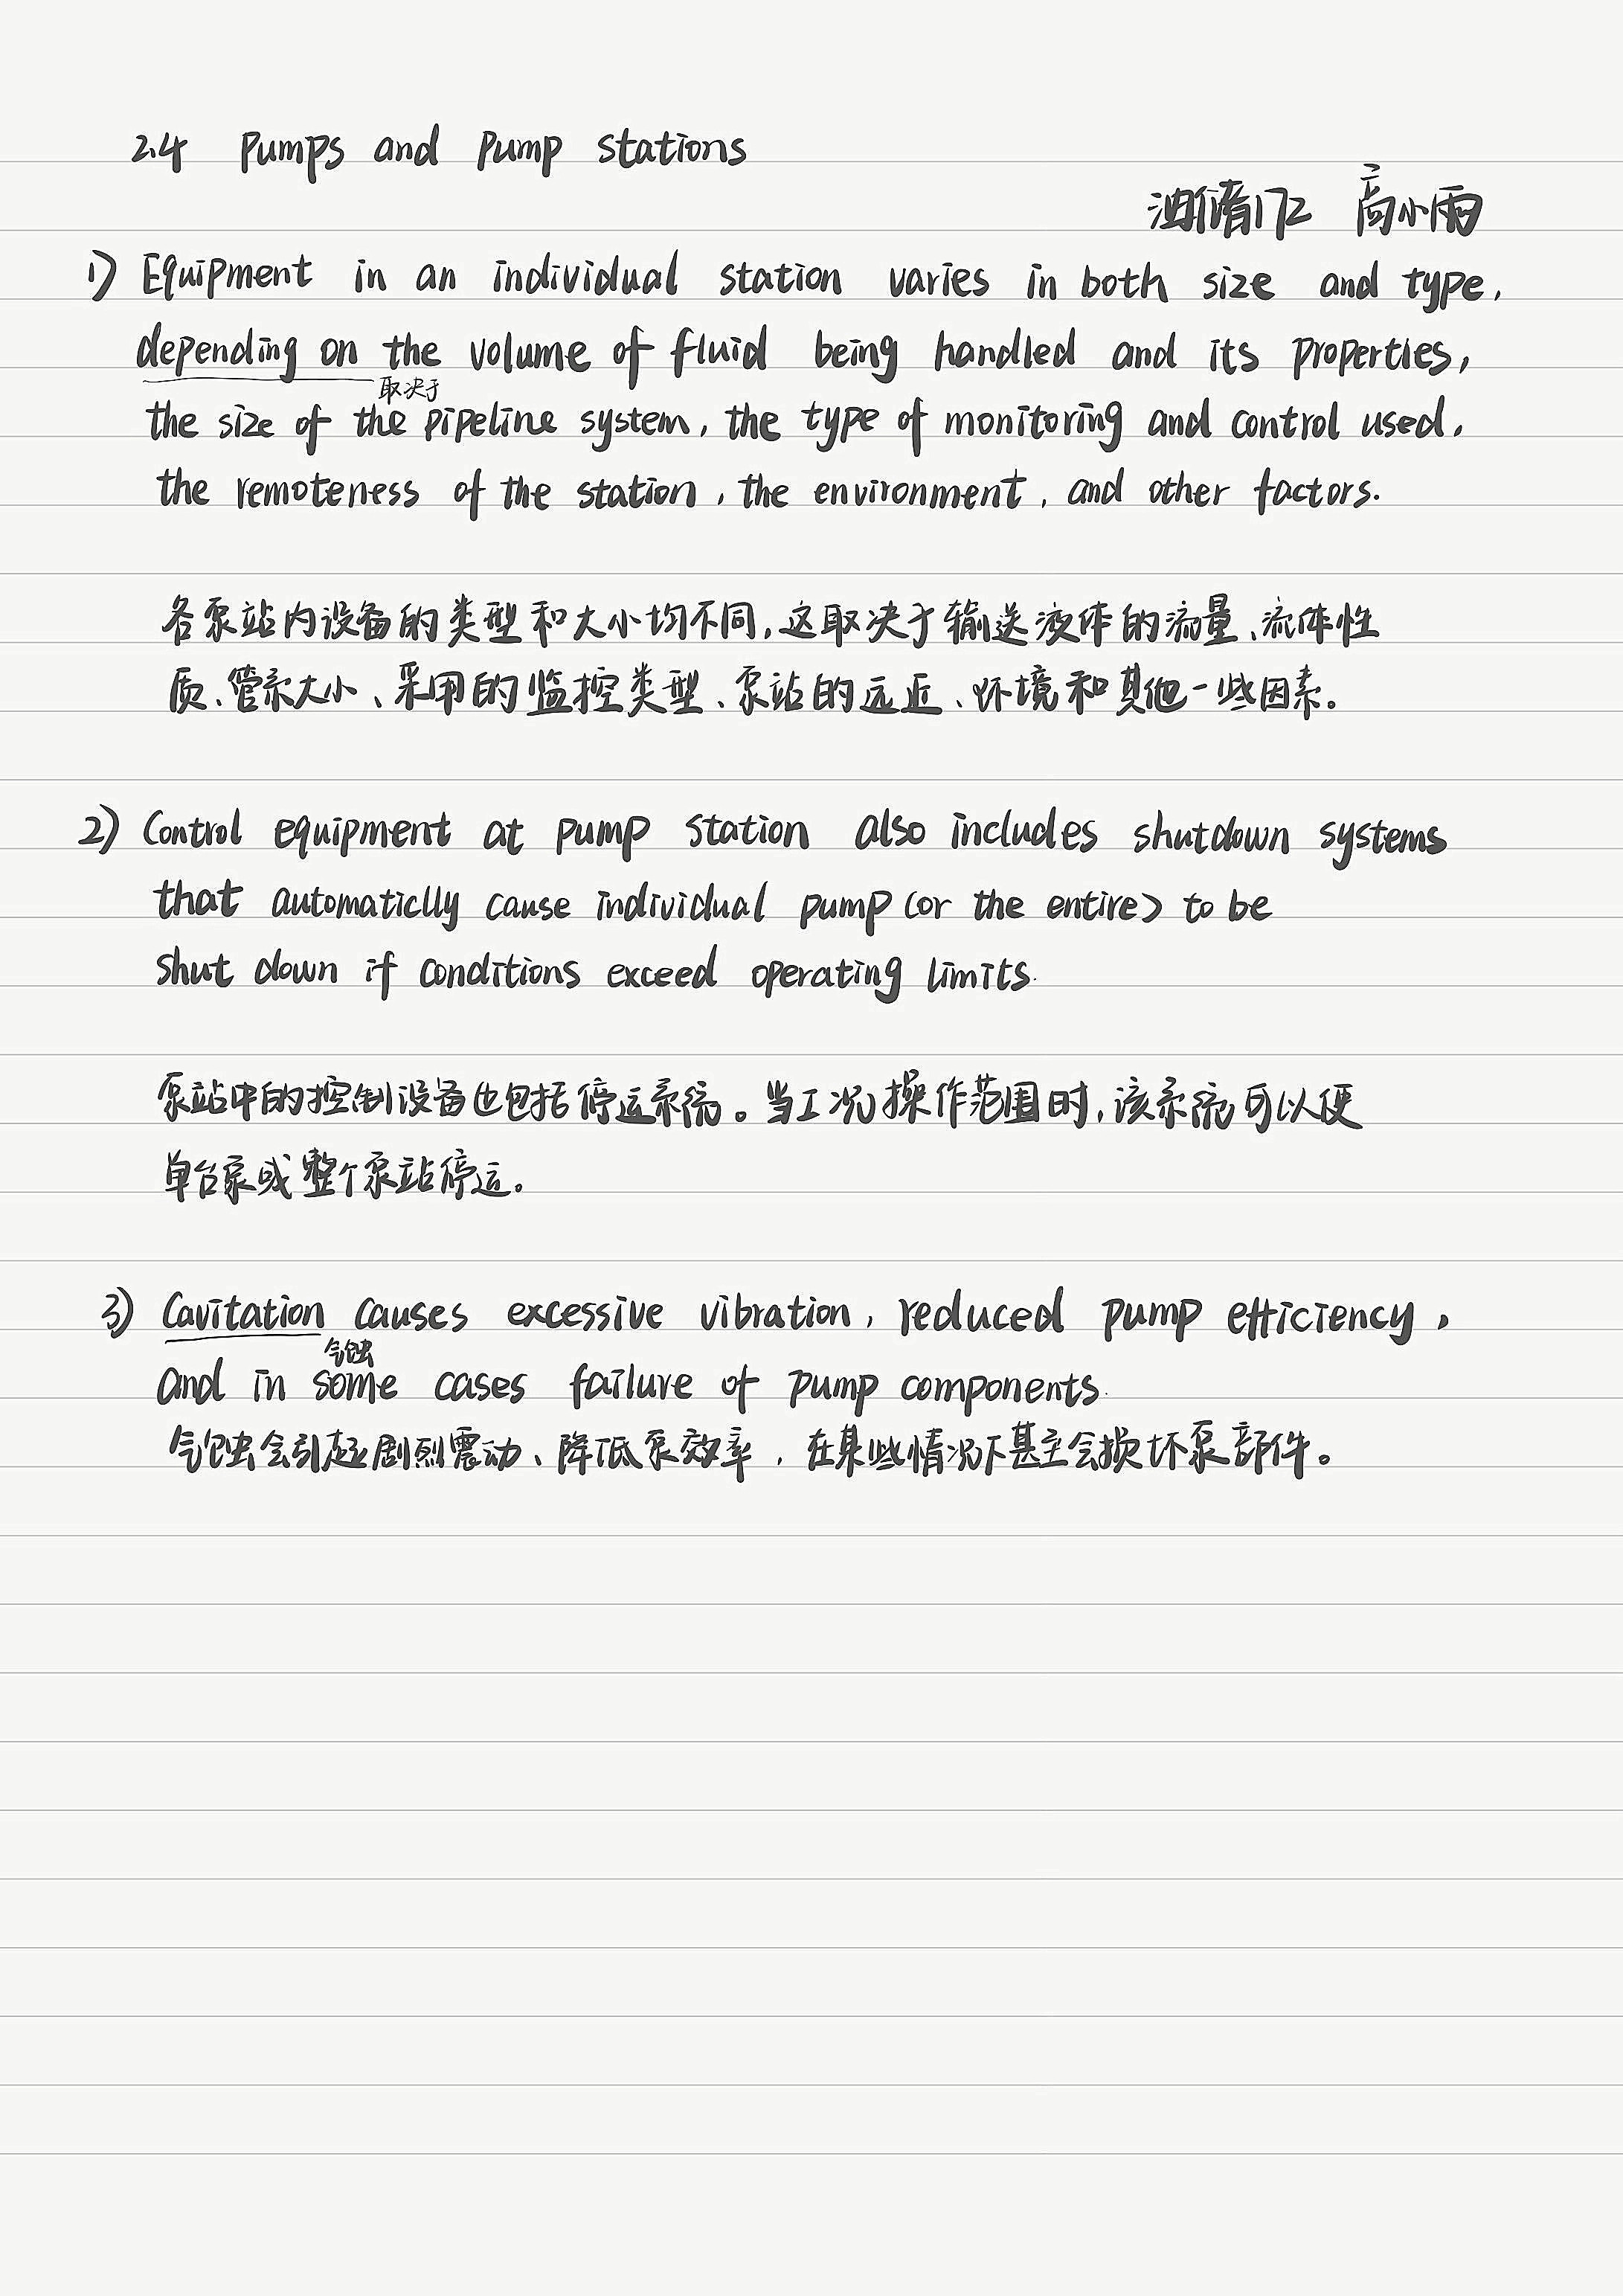 2.4 Pumps and Pump stations
油储172 高小雨
1) Equipment in an individual station varies in both size and type,
depending on the volume of fluid being handled and its properties,
取决于
the size of the pipeline system, the type of monitoring and control used,
the remoteness of the station, the environment, and other factors.
各泵站内设备的类型和大小均不同,这取决于输送液体的流量、流体性
质、管系大小、采用的监控类型、泵站的远近、环境和其他一些因素。
2) Control equipment at pump station also includes shutdown systems
that automaticlly cause individual pump (or the entire> to be
shut down if conditions exceed operating limits.
泵站中的控制设备也包括停运系统。当工况操作范围时,该系统可以使
单台泵或整个泵站停运。
3) Cavitation causes excessive vibration, reduced pump efficiency,
气蚀
and in some cases failure of pump components.
气蚀会引起剧烈震动、降低泵效率,在某些情况下甚至会损坏泵部件。